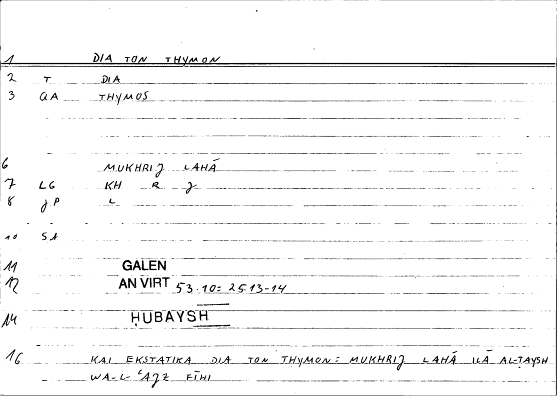 1 DIA TON THYMON
2 T DIA
3 QA THYMOS
6 MUKHRIJ LAHĀ
7 LG KH R J
8 JP L
10 SA
11 GALEN
12 AN VIRT 53.10 = 25.13-14
14 ḤUBAYSH
16 KAI EKSTATIKA DIA TON THYMON = MUKHRIJ LAHĀ ILĀ AL-ṬAYSH
WA-L-ʿAJZ FĪHI